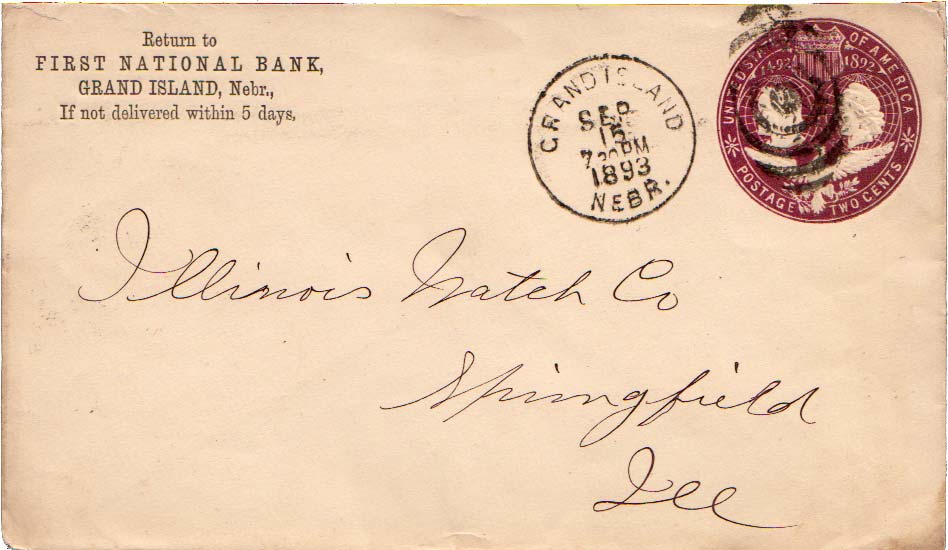 Return to
FIRST NATIONAL BANK,
GRAND ISLAND, Nebr.,
If not delivered within 5 days,
GRAND ISLAND
SEP
15
7 30 PM
1893
NEBR.
UNITED STATES OF AMERICA
1492 1892
POSTAGE TWO CENTS
Illinois Watch Co
Springfield
Ill